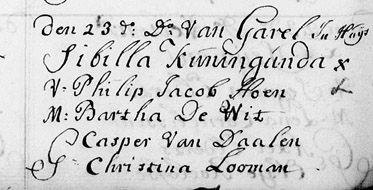 den 23 d: Do van Garel In Huys
Sibilla Kuningunda x
V: Philip Jacob Hoen
M: Bartha De Wit
Casper Van Daalen
Christina Looman